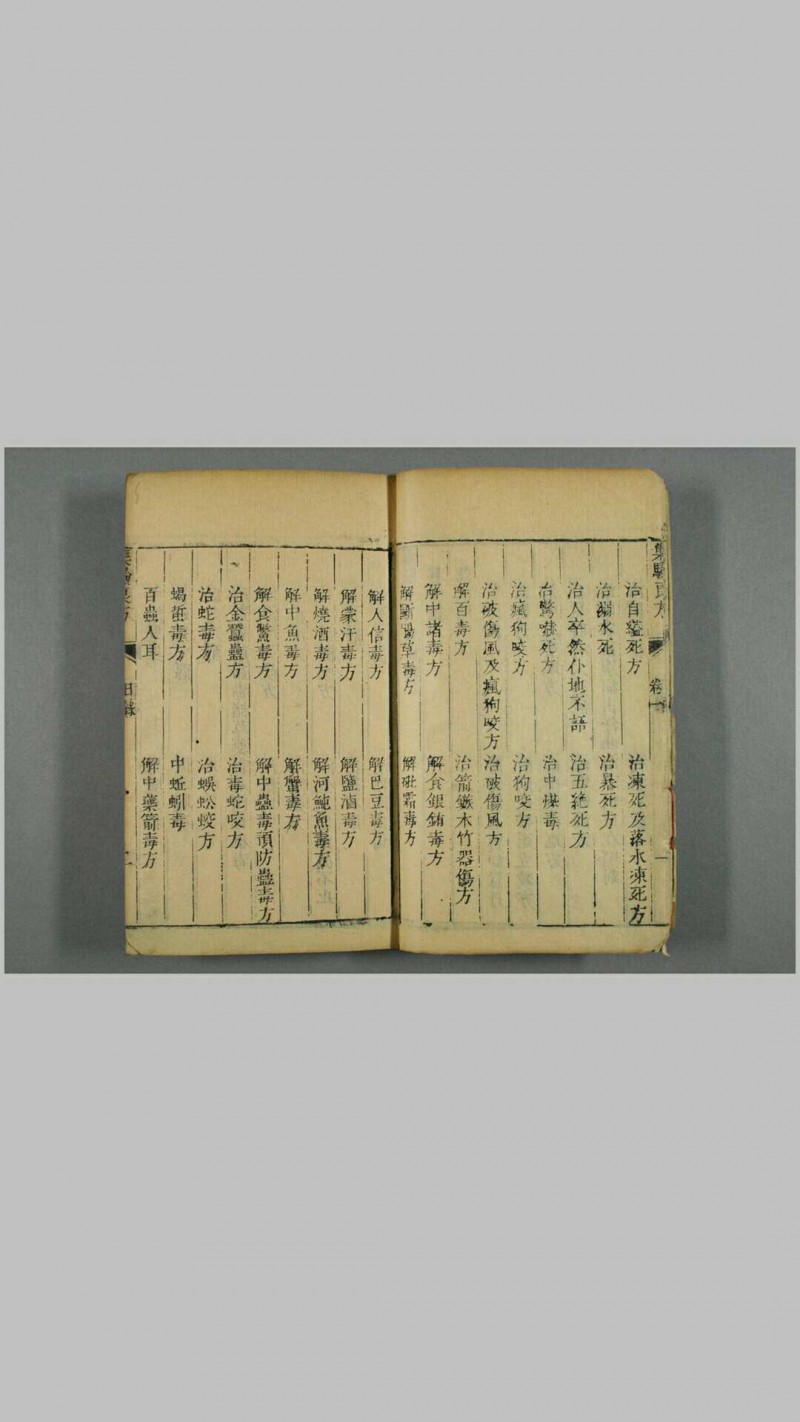 集驗良方 卷一 一
治自縊死方 治凍死及落水凍死方
治溺水死 治暴死方
治人卒然仆地不語 治五絶死方
治驚嚇死方 治中煤毒
治瘋狗咬方 治狗咬方
治破傷風及瘋狗咬方 治破傷風方
解百毒方 治箭鏃木竹器傷方
解中諸毒方 解食銀銹毒方
解斷腸草毒方 解砒霜毒方
解人信毒方 解巴豆毒方
解蒙汗毒方 解鹽滷毒方
解燒酒毒方 解河魨魚毒方
解中魚毒方 解蟹毒方
解食鱉毒方 解中蠱毒預防蠱毒方
治金蠶蠱方 治毒蛇咬方
治蛇毒方 治蜈蚣蛟方
蝎蜇毒方 中蚯蚓毒
百蟲人耳 解中藥箭毒方
集驗良方 目錄